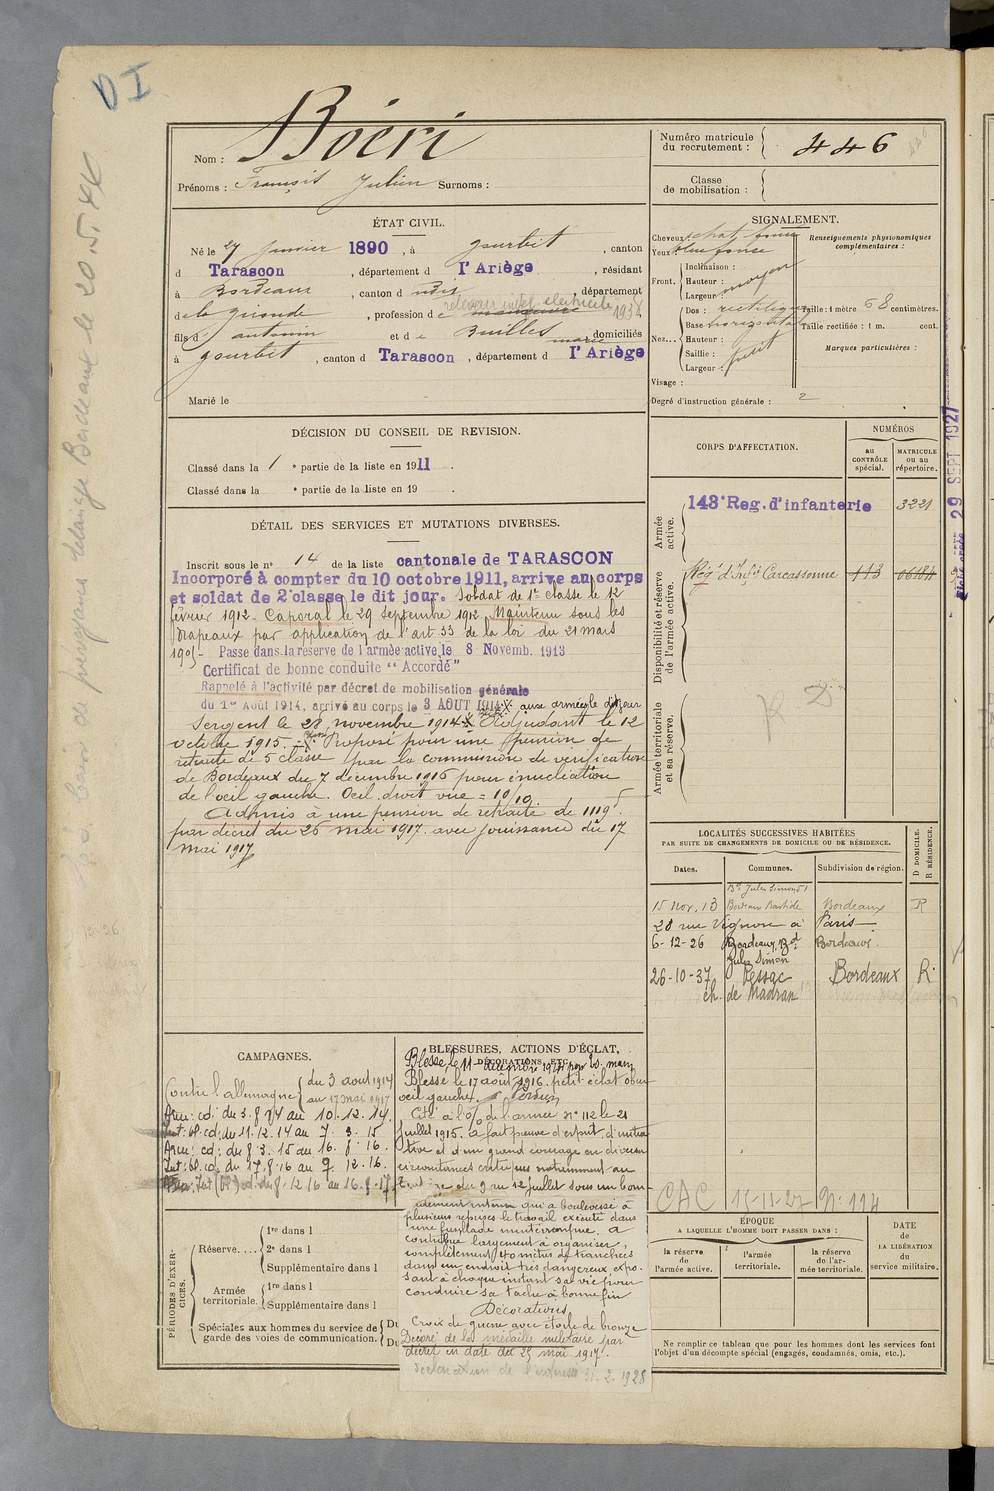 DI
Boéri
Nom :
Prénoms : François Julien Surnoms :
Numéro matricule du recrutement : 446
Classe de mobilisation :
ÉTAT CIVIL.
Né le 27 Janvier 1890, à Gourbit, canton
d Tarascon, département d l'Ariège, résidant
à Bordeaux, canton d udit, département
d e la Gironde, profession d e manœuvre 1938
fils d' Antonin et d e Builles Marie domiciliés
à Gourbit, canton d Tarascon, département d l'Ariège
Marié le
SIGNALEMENT.
Cheveux chat. foncé
Yeux bleu foncé
Front. Inclinaison :
Hauteur : moyen
Largeur :
Nez... Dos : rectiligne
Base horizontal
Hauteur :
Saillie : petit
Largeur :
Visage :
Degré d'instruction générale : 2
Renseignements physionomiques complémentaires :
Taille : 1 mètre 68 centimètres.
Taille rectifiée : 1 m. cent.
Marques particulières :
DÉCISION DU CONSEIL DE REVISION.
Classé dans la 1e partie de la liste en 1911.
Classé dans la e partie de la liste en 19 .
DÉTAIL DES SERVICES ET MUTATIONS DIVERSES.
Inscrit sous le n° 14 de la liste cantonale de TARASCON
Incorporé à compter du 10 octobre 1911, arrive au corps
et soldat de 2e classe le dit jour. Soldat de 1e classe le 12
février 1912. Caporal le 29 septembre 1912 Maintenu sous les
drapeaux par application de l'art 33 de la loi du 21 mars
1905- Passe dans la réserve de l'armée active le 8 Novemb. 1913
Certificat de bonne conduite "Accordé"
Rappelé à l'activité par décret de mobilisation générale
du 1er Août 1914, arrivé au corps le 3 AOUT 1914 aux armées le dit jour
Sergent le 28 novembre 1914 Adjudant le 12
octobre 1915. Proposé pour une pension de
retraite de 5 classe par la commission de vérification
de Bordeaux du 7 décembre 1916 pour énucléation
de l'œil gauche. Oeil droit vue = 10/10.
Admis à une pension de retraite de 1119 f
par décret du 26 mai 1917. avec jouissance du 17
mai 1917
CORPS D'AFFECTATION.
NUMÉROS
au CONTRÔLE spécial.
MATRICULE ou au répertoire.
Armée active.
143e Reg. d'infanterie 3221
Disponibilité et réserve de l'armée active.
Régt d'Infie Carcassonne 113 06184
Armée territoriale et sa réserve.
R D
29 SEPT 1927
LOCALITÉS SUCCESSIVES HABITÉES
PAR SUITE DE CHANGEMENTS DE DOMICILE OU DE RÉSIDENCE.
Dates. Communes. Subdivision de région. D DOMICILE. R RÉSIDENCE.
Bd Jules Simon 51
15 Nov. 13 Bordeaux Bastide Bordeaux R
28 rue Vignon à Paris
6-12-26 Bordeaux, Bd Jules Simon Bordeaux
26-10-37 Pessac Bordeaux R
ch. de Madran
CAC 15-11-27 N: 114
CAMPAGNES.
Contre l'allemagne du 3 aout 1914
au 17 mai 1917
Armées: cd: du 3. 8. 14 au 10. 12. 14
Int: bl. cd: du 11. 12. 14 au 7. 3. 15
Armées: cd: du 8 3. 15 au 16. 8. 16
Int: bl. cd: du 17. 8. 16 au 7. 12. 16.
BLESSURES, ACTIONS D'ÉCLAT, DÉCORATIONS, ETC.
Blessé le 11 décembre 1914
Blessé le 17 août 1916. petit éclat obus
oeil gauche. Verdun
Cité à l'O/ de l'armée n° 112 le 21
juillet 1915. a fait preuve d'esprit d'initia
tive et d'un grand courage en diverses
circonstances critiques notamment au
du 9 au 12 juillet sous un bom-
bardement intense qui a bouleversé à
plusieurs reprises le travail exécuté dans
une fusillade ininterrompue. A
contribué largement à organiser
complètement 40 mètres de tranchées
dans un endroit très dangereux expo-
sant à chaque instant sa vie pour
conduire sa tache à bonne fin
Décorations
Croix de guerre avec étoile de bronze
Décoré de la médaille militaire par
décret en date du 25 mai 1917.
déclaration de l'intéressé 2. 1928
PÉRIODES D'EXERCICES.
Réserve.... 1re dans l
2e dans l
Supplémentaire dans l
Armée territoriale. 1re dans l
Supplémentaire dans l
Spéciales aux hommes du service de garde des voies de communication. Du
Du
ÉPOQUE
A LAQUELLE L'HOMME DOIT PASSER DANS :
la réserve de l'armée active.
l'armée territoriale.
la réserve de l'armée territoriale.
DATE de LA LIBÉRATION du service militaire.
Ne remplir ce tableau que pour les hommes dont les services font
l'objet d'un décompte spécial (engagés, condamnés, omis, etc.).